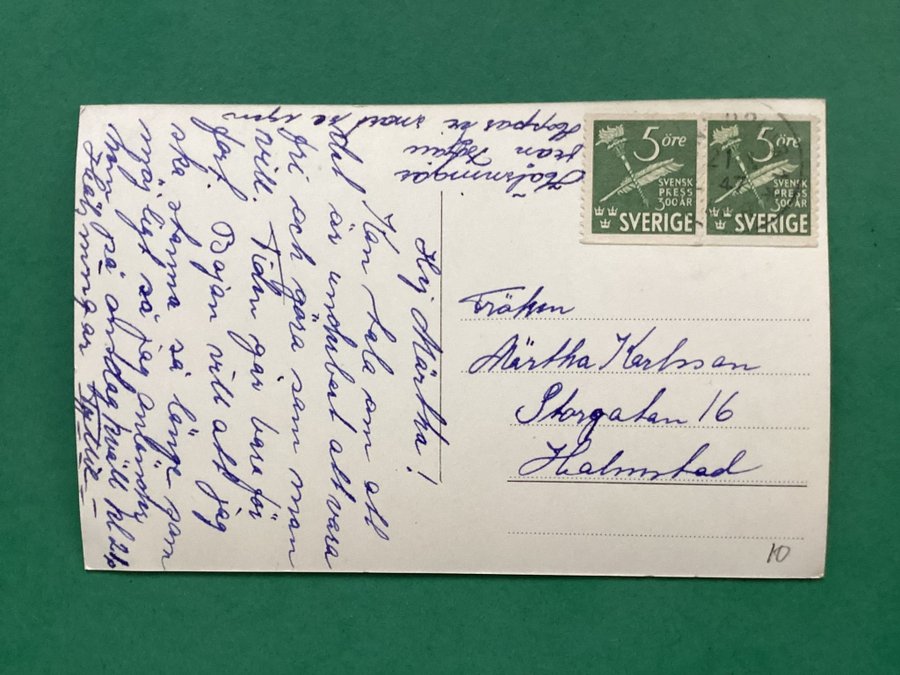 Hej Märtha!
Kan tala om att
det är underbart att vara
fri och göra som man
vill. Tiden går bara för
fort. Bojan vill att jag
ska stanna så länge som
möjligt så jag
på onsdag kväll kl
Hälsningar
Hälsningar
från
Hoppas vi snart se
5 öre
SVENSK
PRESS
300 ÅR
SVERIGE
5 öre
SVENSK
PRESS
300 ÅR
SVERIGE
21
47
Fröken
Märtha Karlsson
Storgatan 16
Halmstad
10